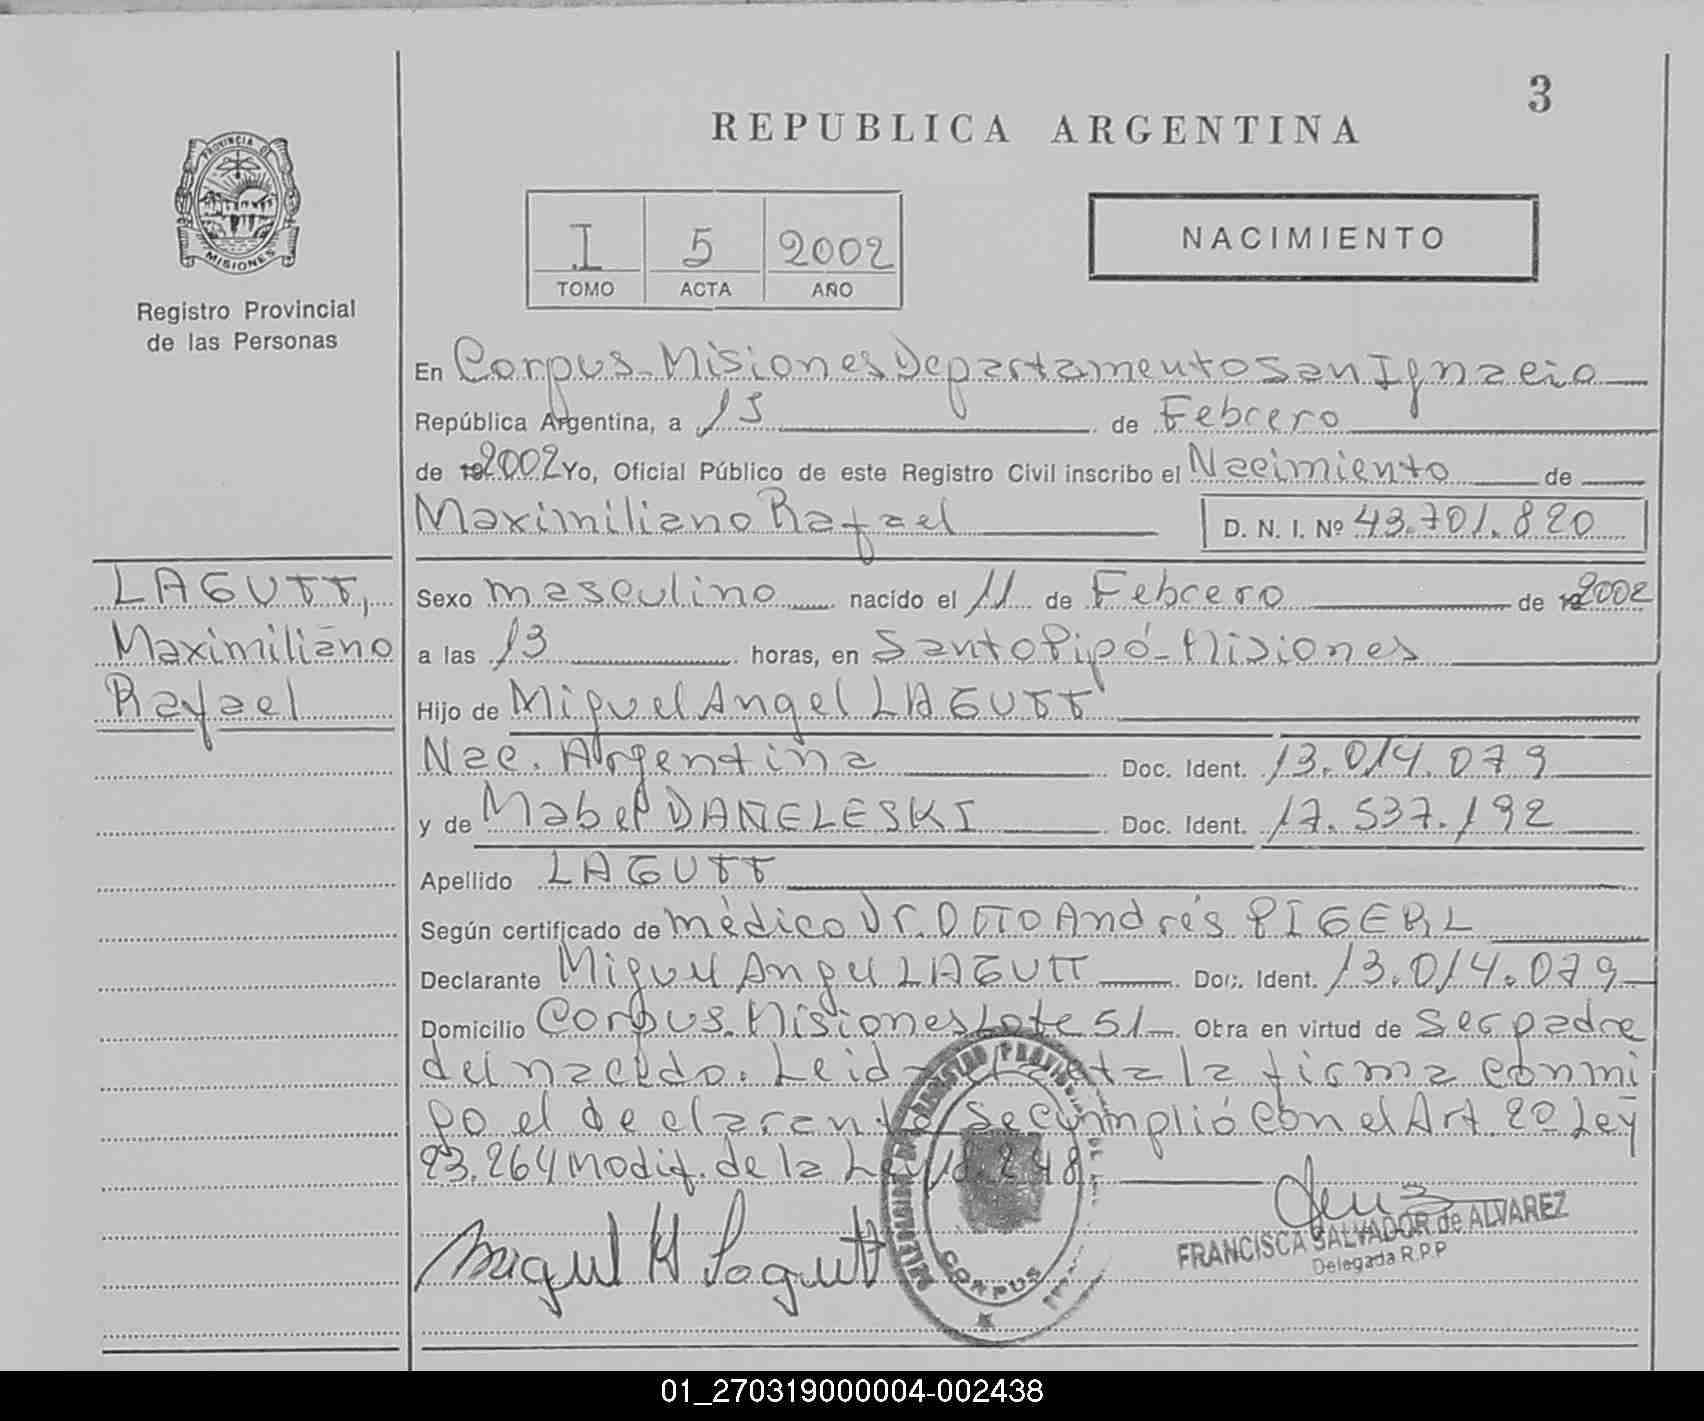 3
REPUBLICA ARGENTINA
PROVINCIA DE
MISIONES
Registro Provincial
de las Personas
I 5 2002
TOMO ACTA AÑO
NACIMIENTO
En Corpus-Misiones Departamento San Ignacio
República Argentina, a 13 de Febrero
de 192002 Yo, Oficial Público de este Registro Civil inscribo el Nacimiento de
Maximiliano Rafael D. N. I. Nº 43.701.820
LAGUTT,
Maximiliano
Rafael
Sexo masculino nacido el 11 de Febrero de 192002
a las 13 horas, en Santo Pipó-Misiones
Hijo de Miguel Angel LAGUTT
Nac. Argentina Doc. Ident. 13.014.079
y de Mabel DANELESKI Doc. Ident. 17.537.192
Apellido LAGUTT
Según certificado de médico Dr. OTTO Andrés PIGERL
Declarante Miguel Angel LAGUTT Doc. Ident. 13.014.079
Domicilio Corpus-Misiones Lote 51 Obra en virtud de ser padre
del nacido. Leida el acta la firma conmi
go el declarante se cumplió con el Art. 2º Ley
23.264 modif. de la Ley 18.248
Miguel A Lagutt
CORPUS
FRANCISCA SALVADOR de ALVAREZ
Delegada R.P.P
01_270319000004-002438